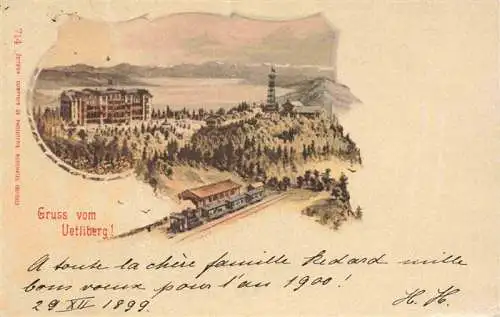 Gruss vom
Uetliberg!
A toute la chère famille Bedard mille
bons voeux pour l'an 1900!
29 XII 1899.
H. H.